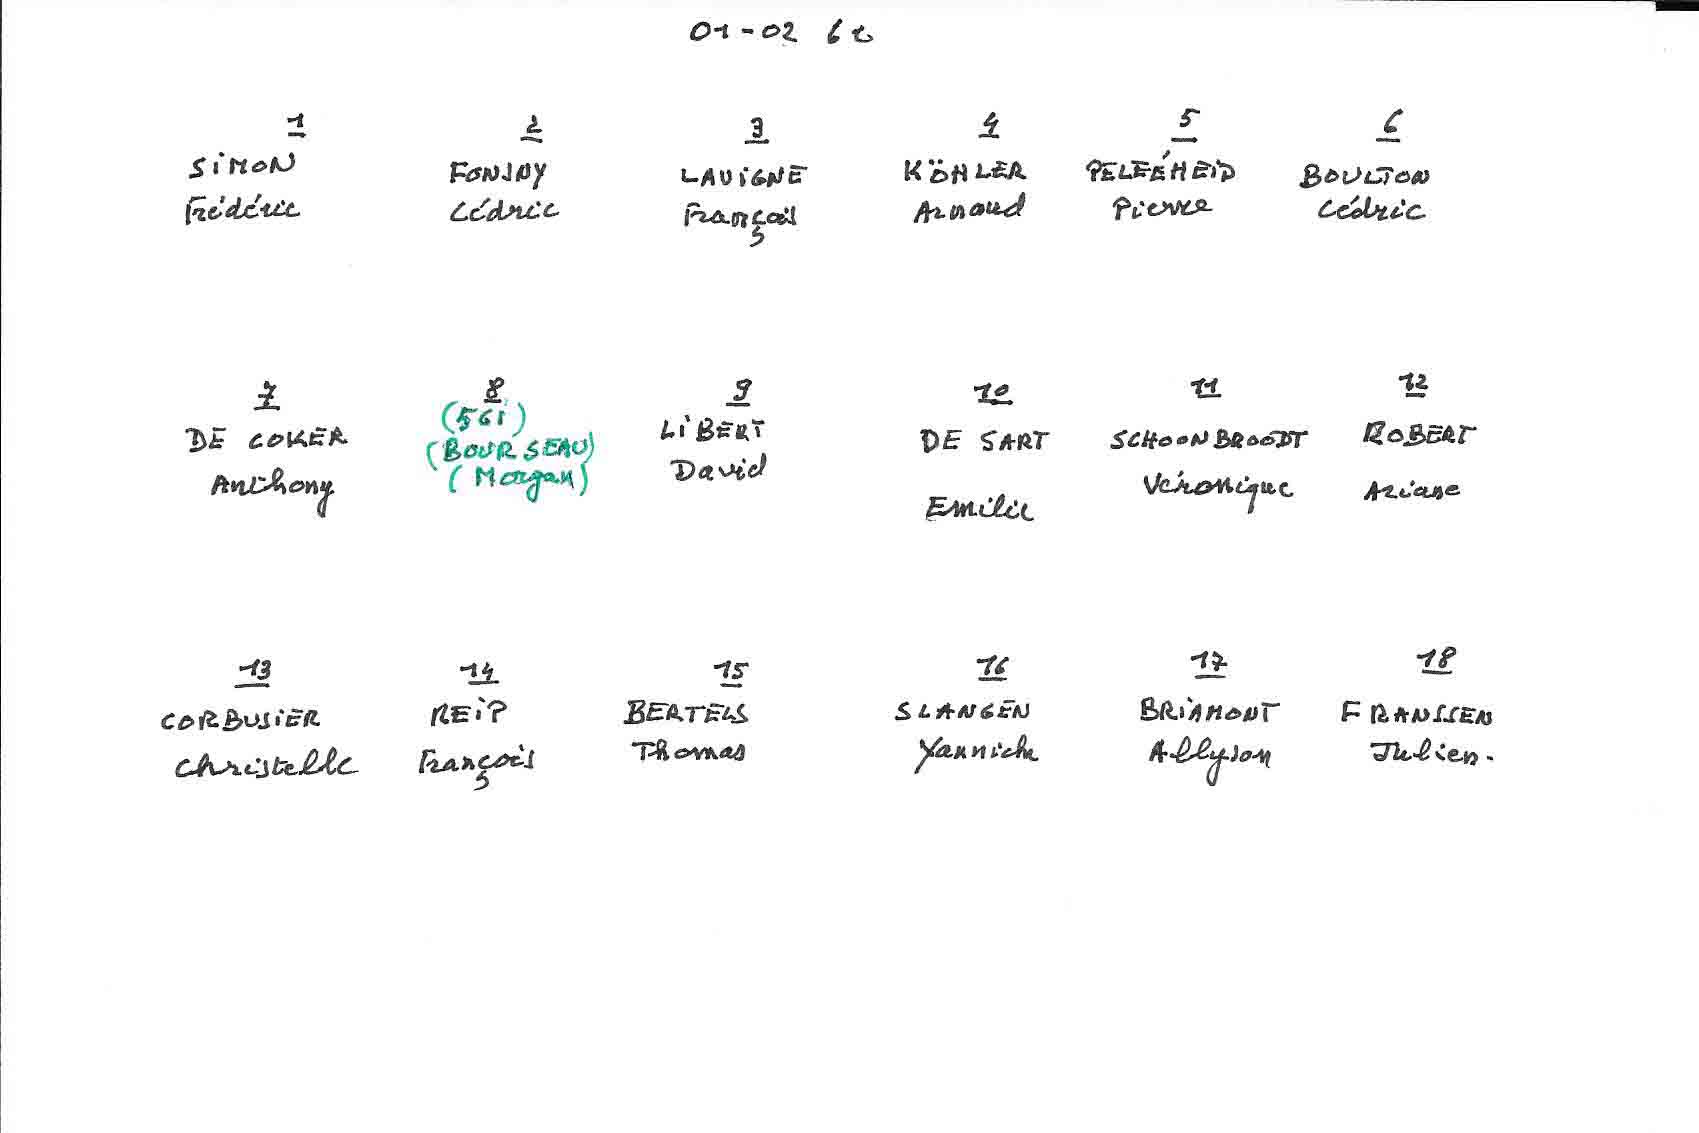 01-02 6c
1
SiMON
Frédéric
2
FONJNY
Cédric
3
LAVIGNE
François
4
KÖHLER
Arnaud
5
PELÉEHEID
Pierre
6
BOULTON
Cédric
7
DE COKER
Anthony
8
(5Gi)
(BOURSEAU)
(Morgan)
9
LIBERT
David
10
DE SART
Emilie
11
SCHOONBROODT
Véronique
12
ROBERT
Ariane
13
CORBUSIER
Christelle
14
REIP
François
15
BERTELS
Thomas
16
SLANGEN
Yannick
17
BRIAMONT
Allyson
18
FRANSSEN
Julien.